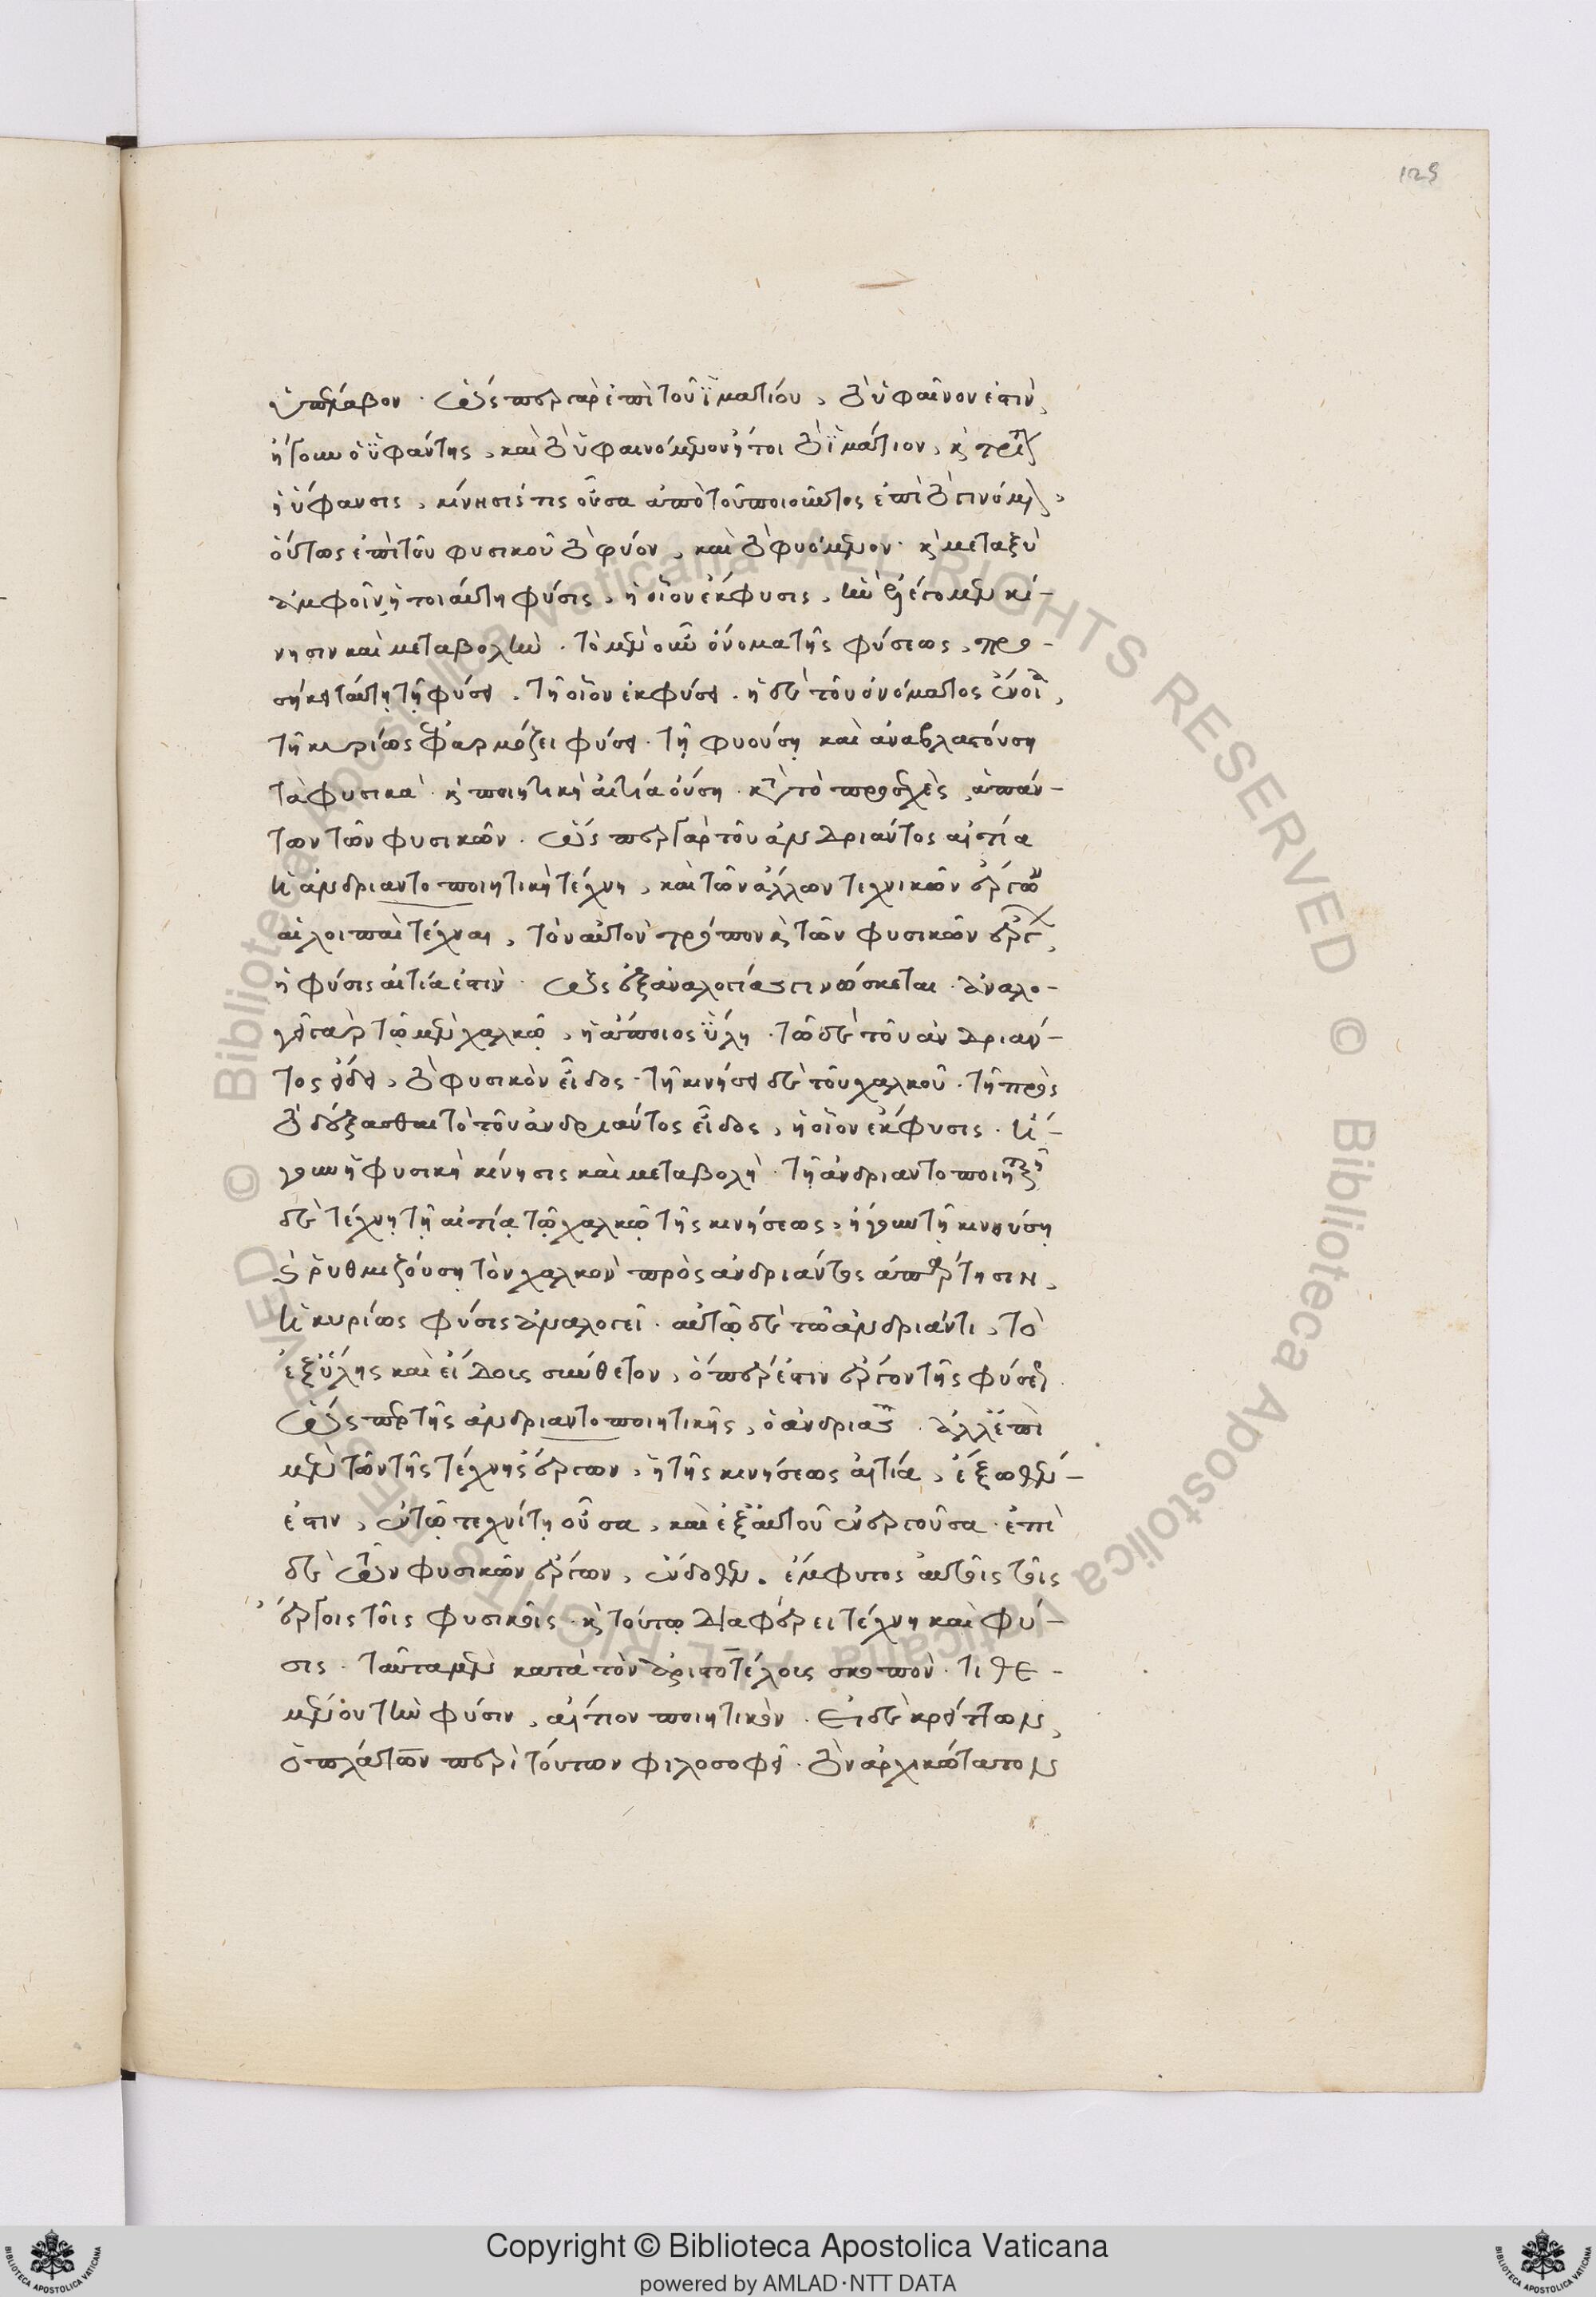 129
ὑπέλαβον. ὥσπερ γὰρ ἐπὶ τοῦ ἱματίου, τὸ ὑφαῖνον ἐστὶν,
ἤγουν ὁ ὑφάντης, καὶ τὸ ὑφαινόμενον ἤτοι τὸ ἱμάτιον, καὶ τρίτον
ἡ ὕφανσις, κίνησίς τις οὖσα ἀπὸ τοῦ ποιοῦντος ἐπὶ τὸ γινόμενον,
οὕτως ἐπὶ τοῦ φυσικοῦ τὸ φύον, καὶ τὸ φυόμενον. καὶ μεταξὺ
ἀμφοῖν ἡ τοιαύτη φύσις, ἡ οἷον ἔκφυσις, ἣν λέγομεν κί-
νησιν καὶ μεταβολήν. τὸ μὲν οὖν ὄνομα τῆς φύσεως, προ-
σήκει ταύτῃ τῇ φύσει. τῇ οἷον ἐκφύσει. ἡ δὲ τοῦ ὀνόματος ἔννοια,
τῇ κυρίως ἐφαρμόζει φύσει. τῇ φυούσῃ καὶ ἀναβλαστούσῃ
τὰ φυσικά. καὶ ποιητικῇ αἰτίᾳ οὔσῃ. κατὰ τὸ προσεχὲς, ἁπάν-
των τῶν φυσικῶν. ὥσπερ γὰρ τοῦ ἀνδριάντος αἰτία
ἡ ἀνδριαντοποιητικὴ τέχνη, καὶ τῶν ἄλλων τεχνικῶν ἔργων
αἱ λοιπαὶ τέχναι, τὸν αὐτὸν τρόπον καὶ τῶν φυσικῶν ἔργων,
ἡ φύσις αἰτία ἐστίν. ὡς ἐξ ἀναλογίας γινώσκεται. ἀναλο-
γεῖ γὰρ τῷ μὲν χαλκῷ, ἡ ἄποιος ὕλη. τῷ δὲ τοῦ ἀνδριάν-
τος εἴδει, τὸ φυσικὸν εἶδος. τῇ κινήσει δὲ τοῦ χαλκοῦ. τῇ πρὸς
τὸ δέξασθαι τὸ τοῦ ἀνδριάντος εἶδος, ἡ οἷον ἔκφυσις. ἤ-
γουν ἡ φυσικὴ κίνησις καὶ μεταβολή. τῇ ἀνδριαντοποιητικῇ
δὲ τέχνῃ τῇ αἰτίᾳ τῷ χαλκῷ τῆς κινήσεως, ἤγουν τῇ κινούσῃ
καὶ ῥυθμιζούσῃ τὸν χαλκὸν πρὸς ἀνδριάντος ἀπάρτησιν,
ἡ κυρίως φύσις ἀναλογεῖ. αὐτῷ δὲ τῷ ἀνδριάντι, τὸ
ἐξ ὕλης καὶ εἴδους σύνθετον, ὅπερ ἐστὶν ἔργον τῆς φύσεως.
ὥσπερ τῆς ἀνδριαντοποιητικῆς, ὁ ἀνδριάς. ἀλλ' ἐπὶ
μὲν τῶν τῆς τέχνης ἔργων, ἡ τῆς κινήσεως αἰτία, ἔξωθέν
ἐστιν, ἐν τῷ τεχνίτῃ οὖσα, καὶ ἐξ αὐτοῦ ἐνεργοῦσα. ἐπὶ
δὲ τῶν φυσικῶν ἔργων, ἔνδοθεν. ἔμφυτος αὐτοῖς τοῖς
ἔργοις τοῖς φυσικοῖς. καὶ τούτῳ διαφέρει τέχνη καὶ φύ-
σις. ταῦτα μὲν κατὰ τὸν Ἀριστοτέλους σκοπὸν. τιθε-
μένου τὴν φύσιν, αἴτιον ποιητικόν. εἰ δὲ κρείττων,
ὁ πλάτων περὶ τούτων φιλοσοφεῖ. τὸν ἀρχικώτατον
Copyright © Biblioteca Apostolica Vaticana
powered by AMLAD·NTT DATA